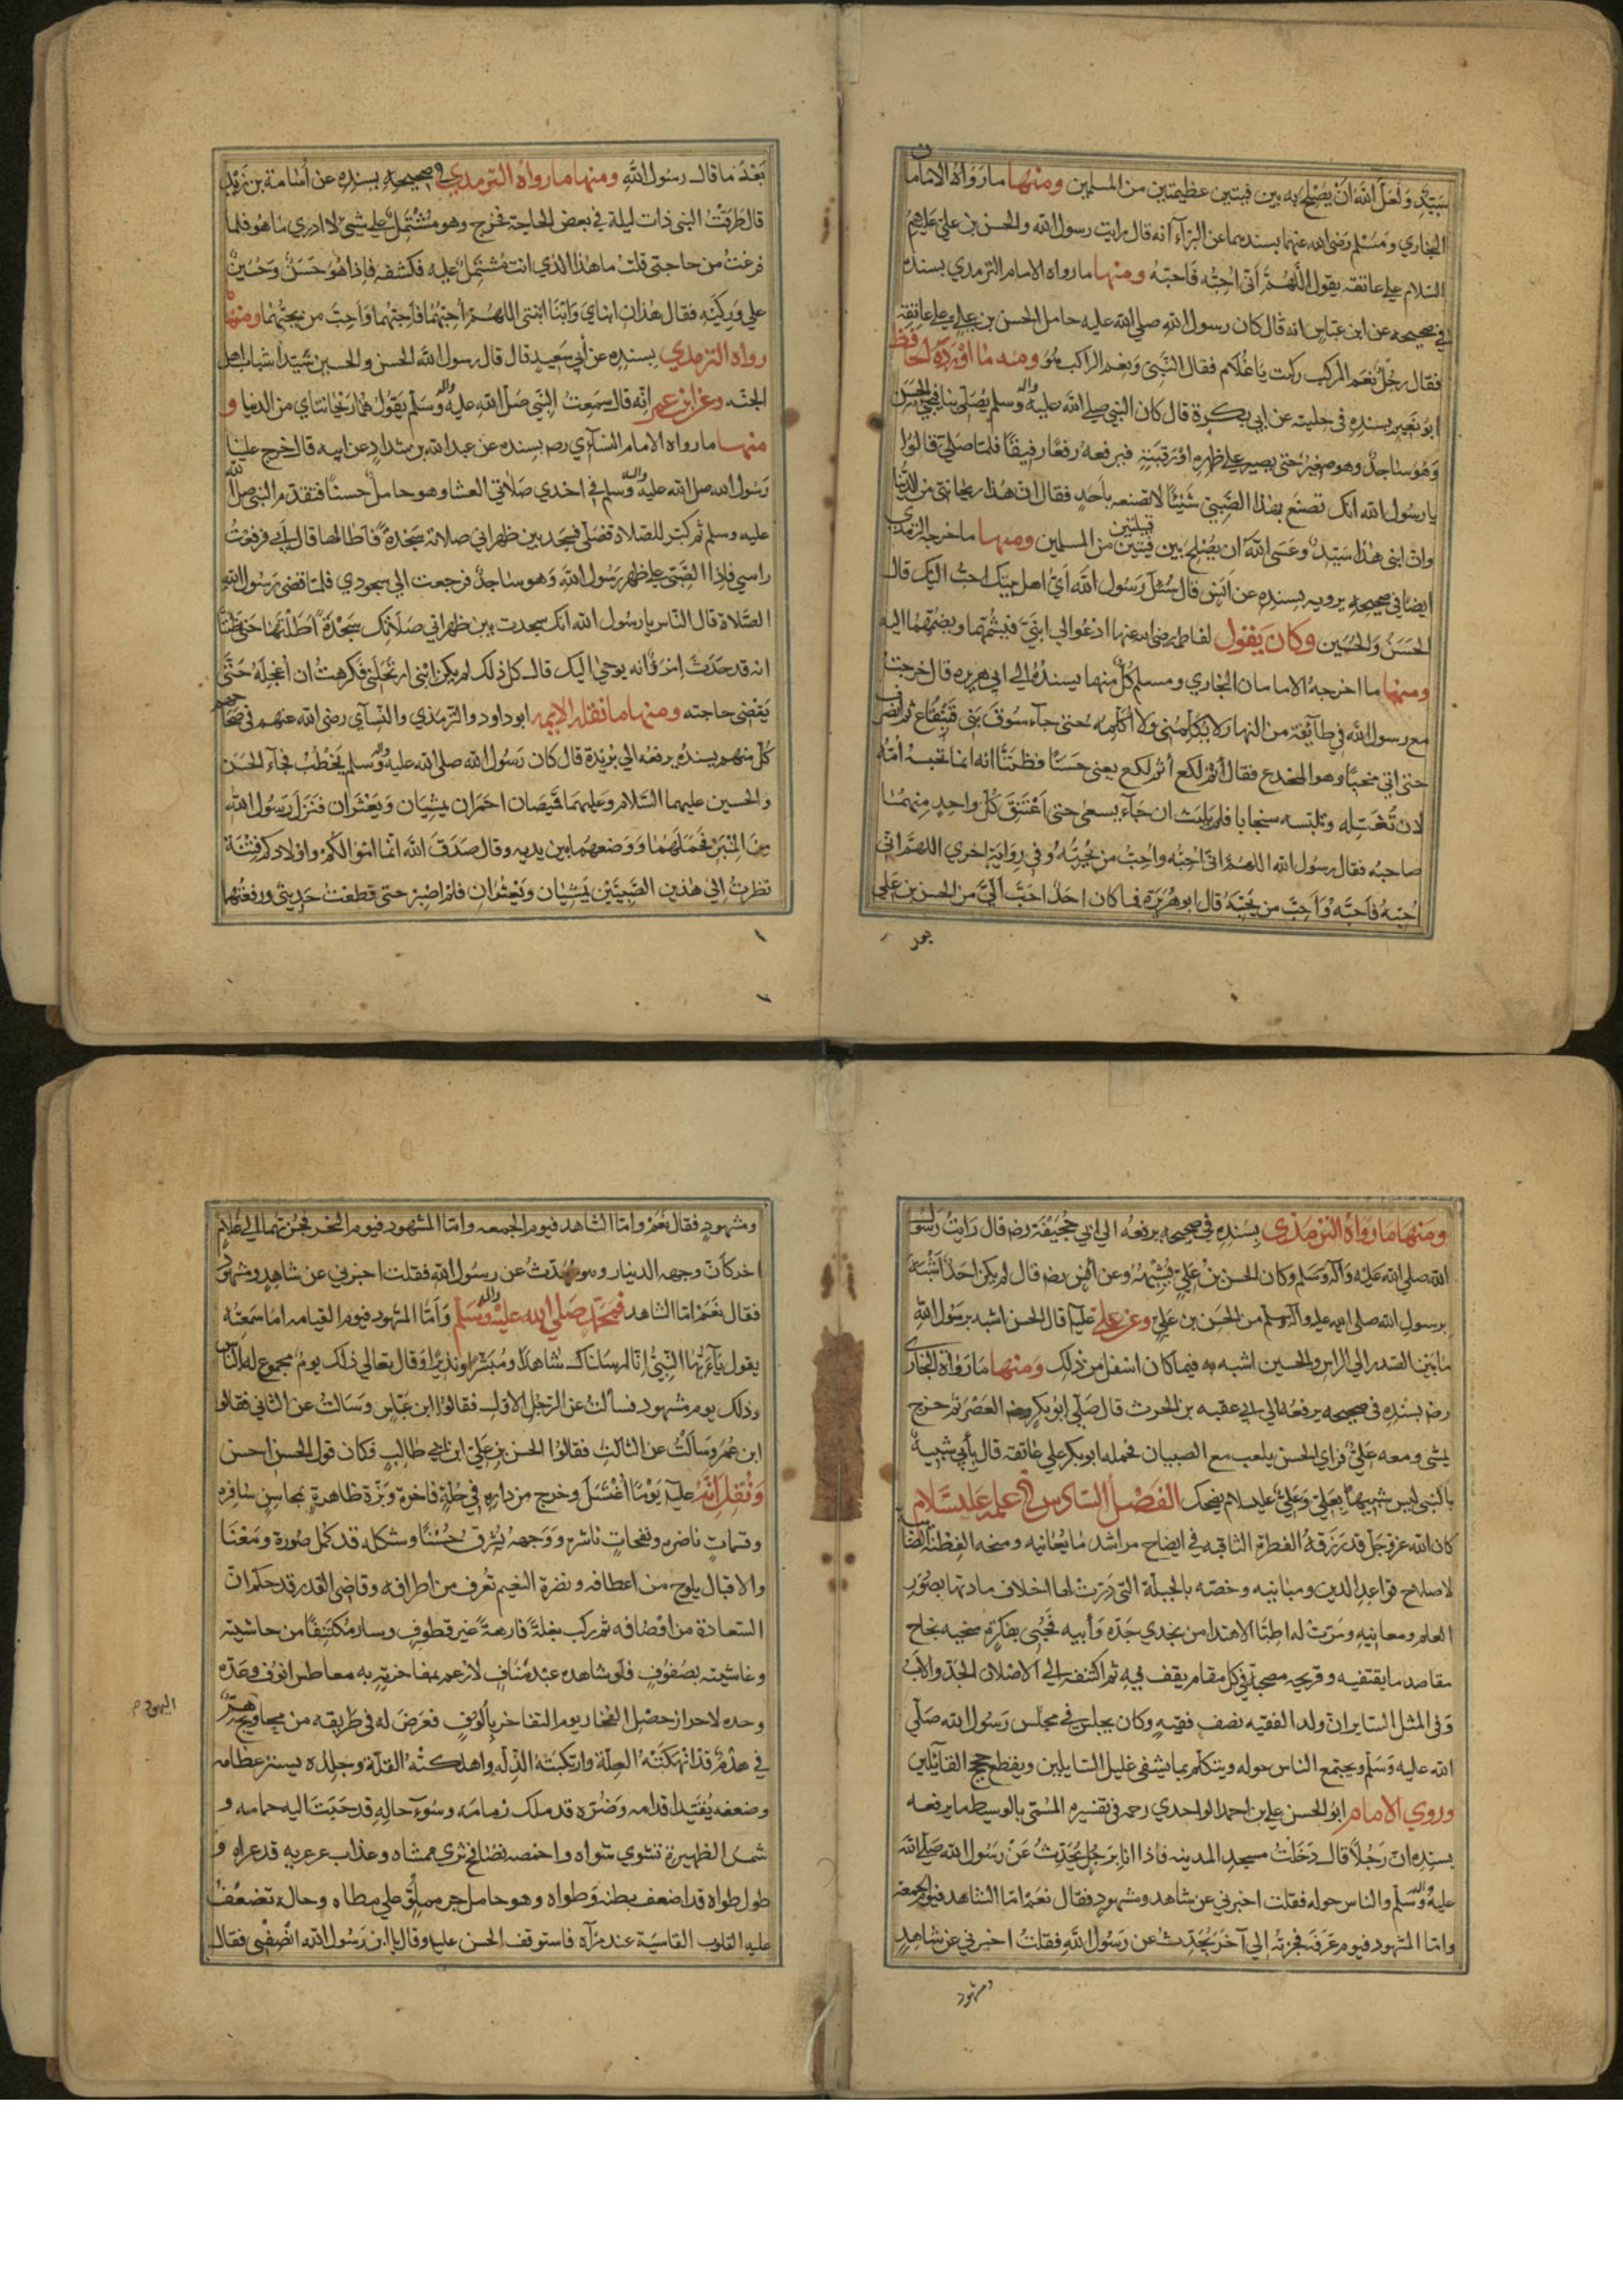 سيد ولعل الله ان يصلح به بين فئتين عظيمتين من المسلمين ومنها ما رواه الامامان
البخاري ومسلم رضى الله عنهما بسنديهما عن البرآء انه قال رايت رسول الله والحسن بن علي عليهم
السلام على عاتقه يقول اللهم انى احبه فاحبه ومنها ما رواه الامام الترمذي بسنده
في صحيحه عن ابن عباس انه قال كان رسول الله صلى الله عليه حامل الحسن بن علي على عاتقه
فقال رجل نعم المركب ركبت يا غلام فقال النبي ونعم الراكب هو ومنه ما اورده الحافظ
ابو نعيم بسنده فى حليته عن ابى بكرة قال كان النبي صلى الله عليه واله وسلم يصلى بنا فيجئ الحسن
وهو ساجد وهو صغير حتى يصير على ظهره او رقبته فيرفعه رفعا رفيقا فلما صلى قالوا
يا رسول الله انك تصنع بهذا الصبي شيئا لا تصنعه باحد فقال ان هذا ريحانتى من الدنيا
وان ابنى هذا سيد وعسى الله ان يصلح بين فئتين من المسلمين ومنها ما خرجه الترمذي
ايضا في صحيحه يرويه بسنده عن انس قال سئل رسول الله اي اهل بيتك احب اليك قال
الحسن والحسين وكان يقول لفاطمه رضى الله عنها ادعوا لي ابني فيشمهما ويضمهما اليه
ومنها ما اخرجه الامامان البخاري ومسلم كل منهما بسنده الى ابي هريره قال خرجت
مع رسول الله في طائفة من النهار لا يكلمنى ولا اكلمه حتى جآء سوق بنى قينقاع ثم انصرف
حتى اتى مخبا وهو المخدع فقال أثم لكع أثم لكع يعنى حسنا فظننا انه انما تحبسه امه
لان تغسله وتلبسه سخابا فلم يلبث ان جآء يسعى حتى اعتنق كل واحد منهما
صاحبه فقال رسول الله اللهم انى احبه واحب من يحبه وفى رواية اخري اللهم انى
احبه فاحبه واحب من يحبه قال ابو هريرة فما كان احد احب الي من الحسن بن علي
بعد
بعد ما قال رسول الله ومنها ما رواه الترمدي في صحيحه بسنده عن أسامة بن زيد
قال طرقت النبى ذات ليلة في بعض الحاجة فخرج وهو مشتمل على شيئ لا ادري ما هو فلما
فرغت من حاجتى قلت ما هذا الذي انت مشتمل عليه فكشفه فاذا هو حسن وحسين
على وركيه فقال هذان ابناي وابنا ابنتى اللهم أحبهما فأحبهما واحب من يحبهما ومنها
رواه الترمدي بسنده عن أبي سعيد قال قال رسول الله الحسن والحسين سيدا شباب اهل
الجنه وعن ابن عمر انه قال سمعت النبي صلى الله عليه واله وسلم يقول هما ريحانتاي من الدنيا و
منها ما رواه الامام النسآئي رحه بسنده عن عبد الله بن شداد عن ابيه قال خرج علينا
رسول الله صلى الله عليه واله وسلم في احدي صلاتي العشا وهو حامل حسنا فتقدم النبي صلى الله
عليه وسلم ثم كبر للصلاة فصلى فسجد بين ظهراني صلاته سجدة فأطالها قال ابي فرفعت
راسي فاذا الصبى على ظهر رسول الله وهو ساجد فرجعت الى سجودي فلما قضى رسول الله
الصلاة قال الناس يا رسول الله انك سجدت بين ظهراني صلاتك سجدة اطلتها حتى ظننا
انه قد حدث امر او انه يوحى اليك قال كل ذلك لم يكن ابنى ارتحلنى فكرهت ان اعجله حتى
يقضى حاجته ومنها ما نقله الايمه ابو داود والترمذي والنسآي رضى الله عنهم في صحاحهم
كل منهم بسنده يرفعه الي بريدة قال كان رسول الله صلى الله عليه واله وسلم يخطب فجآء الحسن
والحسين عليهما السلام وعليهما قميصان احمران يمشيان ويعثران فنزل رسول الله
من المنبر فحملهما ووضعهما بين يديه وقال صدق الله انما اموالكم واولادكم فتنة
نظرت الى هذين الصبيين يمشيان ويعثران فلم اصبر حتى قطعت حديثي ورفعتهما
ومنها ما رواه الترمذى بسنده في صحيحه يرفعه الي ابي جحيفة رضه قال رايت رسول
الله صلى الله عليه وآله وسلم وكان الحسن بن علي يشبهه وعن انس رضه قال لم يكن احد اشبه
برسول الله صلى الله عليه وآله وسلم من الحسن بن علي وعن علي علية قال الحسن اشبه برسول الله
ما بين الصدر الي الراس والحسين اشبه به فيما كان اسفل من ذلك ومنها ما رواه البخارى
رضه بسنده فى صحيحه يرفعه الي عقبه بن الحرث قال صلى ابو بكر رضه العصر ثم خرج
يمشى ومعه على فراي الحسن يلعب مع الصبيان فحمله ابو بكر على عاتقه قال بأبي شبيه
بالنبى ليس شبيها بعلي وعلي عليه سلام يضحك الفصل السادس في علمه عليه سلام
كان الله عز وجل قد رزقه الفطرة الثاقبه في ايضاح مراشد ما يعانيه ومنحه الفطنة الصائبة
لاصلاح قواعد الدين ومبانيه وخصه بالجبلة التى درت لها اخلاف مادتها بصور
العلم ومعانيه ومرت له اطبا الاهتدا من نجدي جده وأبيه فجبى بفكرة منجبه نجاح
مقاصد ما يقتفيه وقريحه مصحبة في كل مقام يقف فيه ثم اكتنفه الي الاصلان الجد والاب
وفى المثل الساير ان ولد الفقيه نصف فقيه وكان يجلس في مجلس رسول الله صلى
الله عليه وسلم ويجتمع الناس حوله ويتكلم بما يشفى غليل السايلين ويقطع حجج القآئلين
وروي الامام ابو الحسن علي بن احمد الواحدي رحه فى تفسيره المسمى بالوسيط ما يرفعه
بسنده ان رجلا قال دخلت مسجد المدينه فاذا انا برجل يحدث عن رسول الله صلى الله
عليه واله وسلم والناس حوله فقلت اخبرني عن شاهد ومشهود فقال نعم اما الشاهد فيوم الجمعة
واما المشهود فيوم عرفه فجزته الي آخر يحدث عن رسول الله فقلت اخبرني عن شاهد
ومشهود
ومشهود فقال نعم واما الشاهد فيوم الجمعه واما المشهود فيوم النحر فجزتهما الي غلام
اخر كان وجهه الدينار وهو يحدث عن رسول الله فقلت اخبرني عن شاهد ومشهود
فقال نعم اما الشاهد فمحمد صلى الله عليه واله وسلم وأما المشهود فيوم القيامه اما سمعته
يقول يآءيها النبي انا ارسلناك شاهدا ومبشرا ونذيرا وقال تعالى ذلك يوم مجموع له الناس
وذلك يوم مشهود فسألت عن الرجل الاول فقالوا ابن عباس وسالت عن الثاني فقالوا
ابن عمر وسألت عن الثالث فقالوا الحسن بن علي ابن ابى طالب فكان قول الحسن احسن
ونقل انه علية يوما اغتسل وخرج من داره في حلة فاخرة وبزة ظاهرة بمحاسن سافره
وقسمات ناضره ونفحات ناشره ووجهه يشرق حسنا وشكله قد كمل صورة ومعنا
والاقبال يلوح من اعطافه ونضرة النعيم تعرف من اطرافه وقاضى القدر قد حكم ان
السعادة من اوصافه ثم ركب بغلة فارهة غير قطوف وسار مكتنفا من حاشيته
وغاشيته بصفوف فلو شاهده عبد مناف لارغم بمفاخرته به معاطس انوف وعده
وحده لاحراز خصل الفخار يوم التفاخر بألوف فعرض له فى طريقه من محاويج
اليهود هم
في هدم قد انهكته العلة وارتكبته الذله واهلكته القلة وجلده يستر عظامه
وضعفه يقيد اقدامه وضره قد ملك زمامه وسوء حاله قد حبب اليه حمامه و
شمس الظهيرة تشوي شواه واخمصه يصافح ثرى ممشاه وعذاب عرعريه قد عراه و
طول طواه قد اضعف بطنه وطواه وهو حامل جر مملو على مطاه وحاله تضعف
عليه القلوب القاسية عند مرآه فاستوقف الحسن علية وقال يا ابن رسول الله انصفني فقال